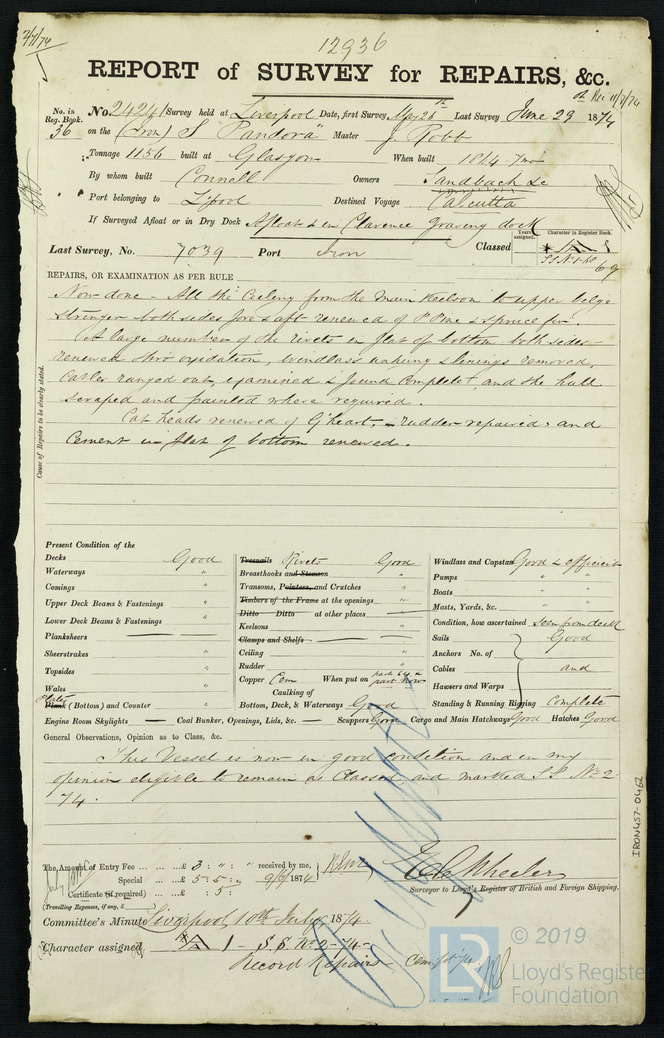 12936
REPORT of SURVEY for REPAIRS, &c.
No. in Reg. Book. 36
No. 24241 Survey held at Liverpool Date, first Survey May 26th Last Survey June 29 1874
on the (Iron) S "Pandora" Master J. Robb
Tonnage 1156 built at Glasgow When built 1864 - 7mo
By whom built Connell Owners Sandbach &c
Port belonging to L'pool Destined Voyage Calcutta
If Surveyed Afloat or in Dry Dock Afloat & in Clarence graving dock
Years assigned. Character in Register Book.
Last Survey, No. 7039 Port Iron Classed A 1
69
REPAIRS, OR EXAMINATION AS PER RULE
Cause of Repairs to be clearly stated.
Now done - All the Ceiling from the Main Keelson to upper bilge
stringer both sides fore & aft renewed of P Pine & spruce fir.
A large number of the rivets in flat of bottom both sides
renewed thro' oxidation, windlass & linings removed,
Cables ranged out, examined & found Complete, and the hull
scraped and painted where required.
Cat heads renewed of G'heart, rudder repaired, and
Cement in flat of bottom renewed.
Present Condition of the
Decks Good Treenails Rivets Good Windlass and Capstan Good & efficient
Waterways " Breasthooks and Stemson " Pumps " "
Comings " Transoms, Pointers, and Crutches " Boats " "
Upper Deck Beams & Fastenings " Timbers of the Frame at the openings Masts, Yards, &c. " "
Lower Deck Beams & Fastenings " Ditto Ditto at other places Condition, how ascertained seen from deck
Planksheers Keelsons " Sails Good
Sheerstrakes " Clamps and Shelfs Anchors No. of
Topsides " Ceiling " Cables and
Wales " Rudder " Hawsers and Warps
Plates Plank (Bottom) and Counter " Copper Cem When put on part 64 & part now Standing & Running Rigging Complete
Caulking of Bottom, Deck, & Waterways Good
Engine Room Skylights — Coal Bunker, Openings, Lids, &c. — Scuppers Good Cargo and Main Hatchways Good Hatches Good
General Observations, Opinion as to Class, &c.
This Vessel is now in good condition and in my
opinion eligible to remain as Classed and marked SS No 2-
74.
The Amount of Entry Fee £ 3 : " : " received by me,
Special £ 5 : 5 : " 1874
Certificate (if required) £ : 5 :
(Travelling Expenses, if any, £ )
Wheeler
Surveyor to Lloyd's Register of British and Foreign Shipping.
Committee's Minute Liverpool 10th July 1874
Character assigned A 1 - S.S. No 2-74-
Record Repairs -
IRON457-0462
© 2019
LR
Lloyd's Register
Foundation